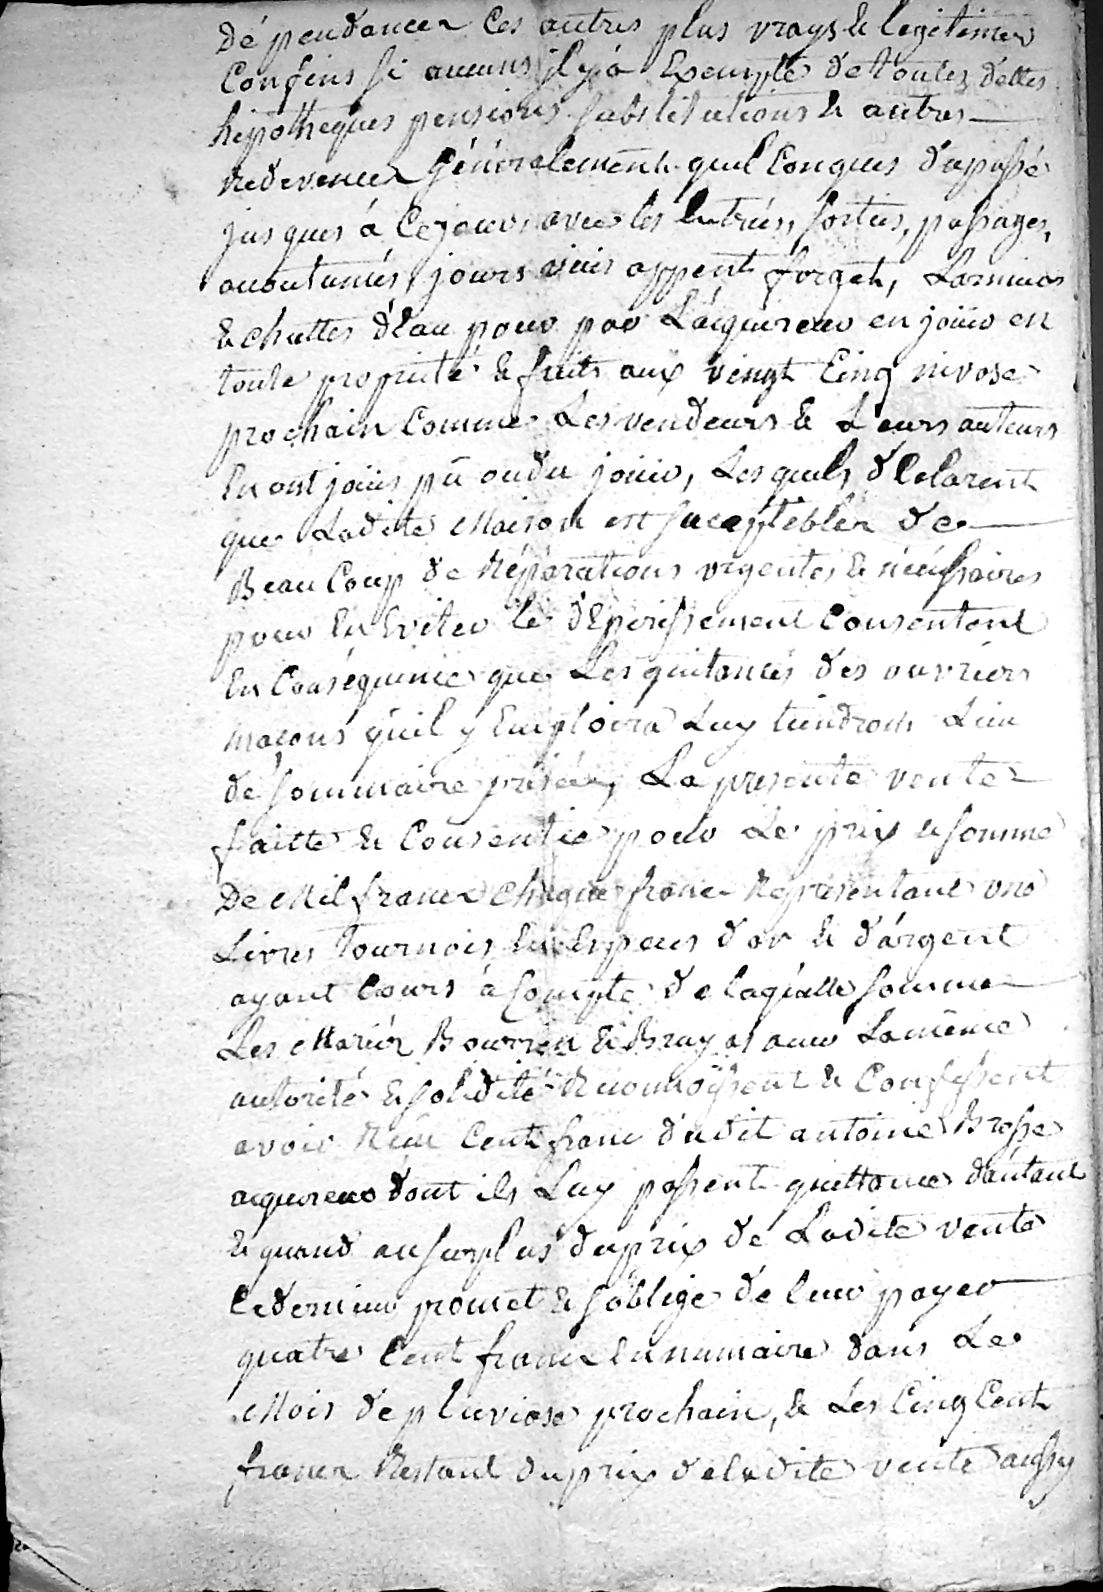 Dépendances Ces autres plus vrays & legitimes
Confins si aucuns il y a Exempte de toutes dettes
hipotheques pensions substitutions & autres
Redevences Générelement quel Conques du passé
jusques à Ce jour, avec les Entrées, sorties, passages,
acoutumés, jours vües appent forget, Larmiers
& chuttes d'Eau pour par L'aquéreur en joüir en
toute proprieté & fruits aux vingt Cinq nivose
prochain Comme Les vendeurs & Leurs auteurs
En ont joüis pû ou du joüir, Lesquels déClarent
que Ladite Maison est suceptibles de
Beau Coup de Réparations urgentes & nécéssaires
pour En Eviter le dépérissement Consentent
En Conséquence que Les quitances des ouvriers
maçons qu'il y Emploira Luy tiendront Lieu
de sommaire prisée, La presente vente
faitte & Consentie pour Le prix & somme
De Mil francs Chaque franc Représentant une
Livres Tournois En Especes d'or & d'argent
ayant Cours à Compte de laquelle somme
Les Mariés Bourrien & Bruyas avec La même
autorité & solidité Reconnoissent & Confessent
avoir Reçu Cent franc dudit antoine Brosse
aquereur dont ils Luy passent quittance d'autant
& quand au surplus du prix de Ladite vente
Ce dernier promet & s'oblige de leur payer
quatre Cent francs En numaire dans Le
Mois de pluviose prochain, & Les Cinq Cent
francs Restant du prix de ladite vente aussy